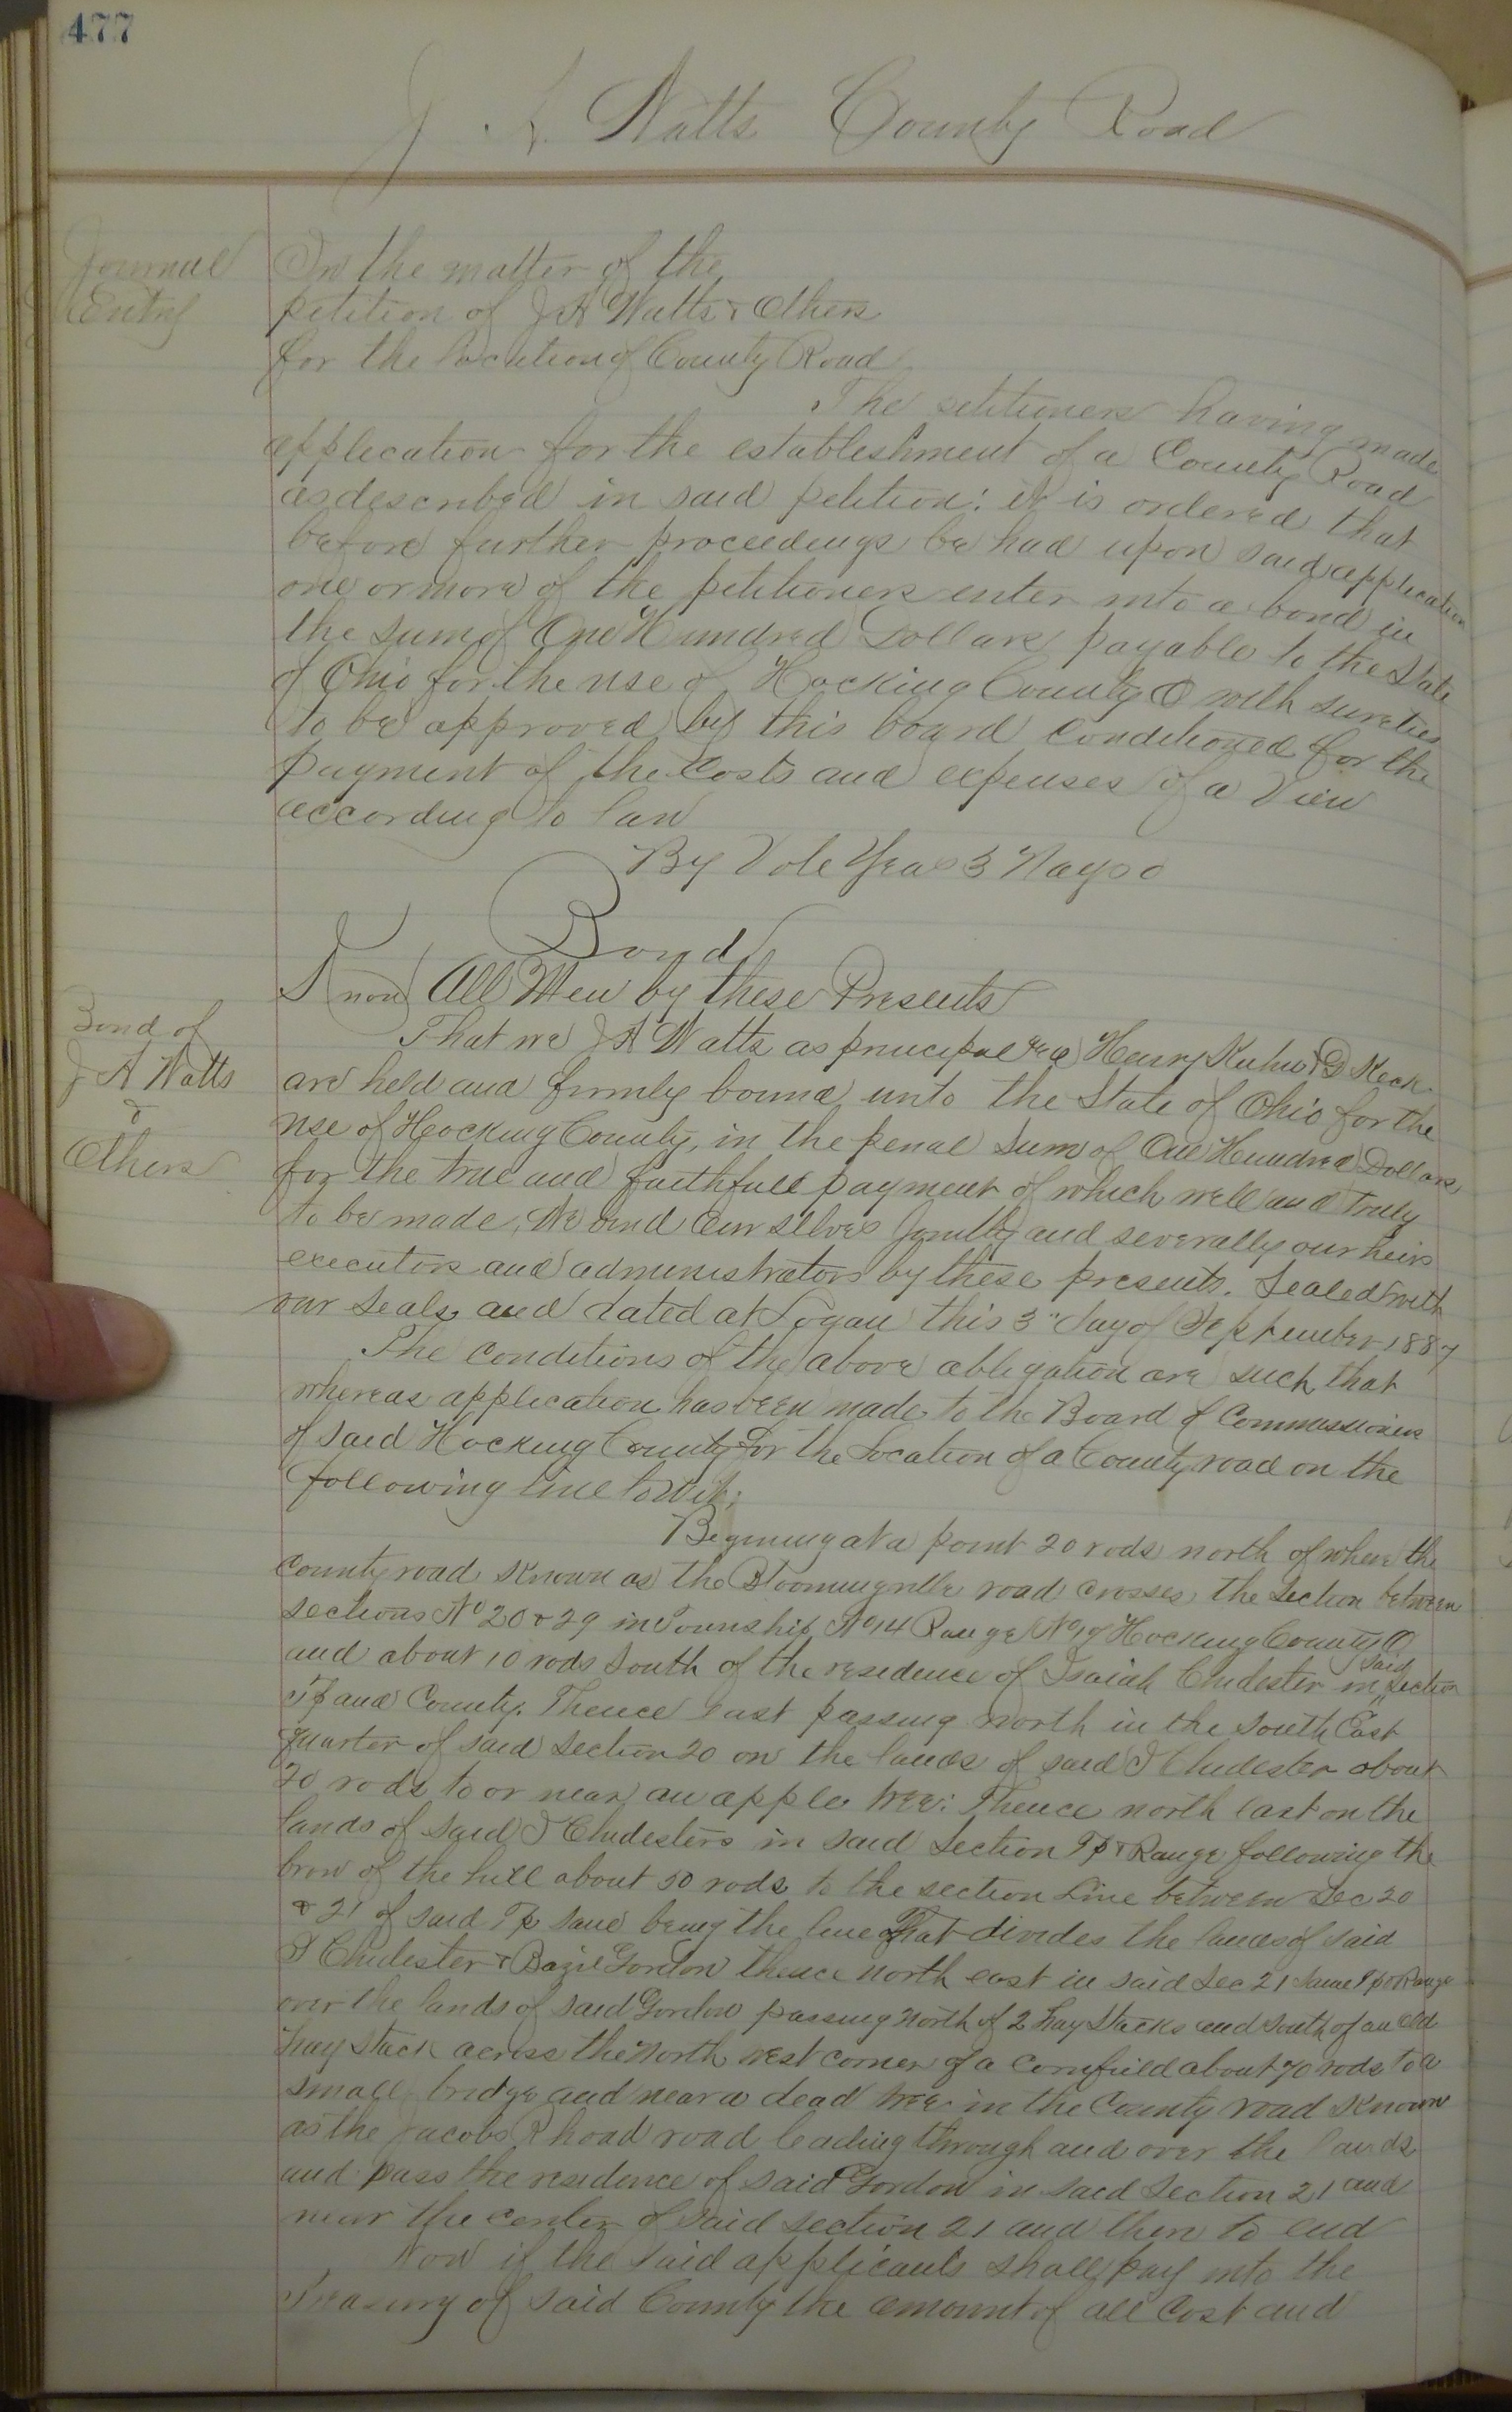 477
J A Watts County Road
Journal
Entry
In the matter of the
petition of J A Watts & Others
for the location of County Road
The petitioners having made
application for the establishment of a County Road
as described in said petition: it is ordered that
before further proceedings be had upon said application
one or more of the petitioners enter into a bond in
the sum of One Hundred Dollars payable to the State
of Ohio for the use of Hocking County O with sureties
to be approved by this board conditioned for the
payment of the Costs and expenses of a View
according to law
By Vote Yeas 3 Nays 0
Bond
Bond of
J A Watts
&
Others
Know All Men by these Presents
That we J A Watts as principal Henry Kuhn & D Keck
are held and firmly bound unto the State of Ohio for the
use of Hocking County, in the penal sum of One Hundred Dollars
for the true and faithfull payment of which well and truly
to be made, We bind Ourselves Jointly and severally our heirs
executors and administrators by these presents. Sealed with
our seals and dated at Logan this 3" day of September 1887
The conditions of the above obligation are such that
whereas application has been made to the Board of Commissioners
of said Hocking County for the Location of a County road on the
following line to wit;
Begining at a point 20 rods north of where the
County road known as the Bloomingville road crosses the section between
sections No 20 & 29 in Township No 14 Range No 17 Hocking County O
and about 10 rods south of the residence of Isaiah Chidester in said section
Tp and County. Thence east passing north in the South East
quarter of said section 20 on the lands of said I Chidester about
20 rods to or near an apple tree: Thence north east on the
lands of said I Chidesters in said section Tp & Range following the
brow of the hill about 50 rods to the section Line between Sec 20
& 21 of said Tp same being the line that divides the lands of said
I Chidester & Bazil Gordon thence north east in said Sec 21 same Tp & Range
over the lands of said Gordon passing North of 2 hay Stacks and south of an old
hay stack across the North west corner of a cornfield about 70 rods to a
small bridge and near a dead tree in the County road known
as the Jacobs Rhoad road leading through and over the lands
and pass the residence of said Gordon in said Section 21 and
near the center of said section 21 and then to end
Now if the said applicants shall pay into the
Treasury of said County the amount of all Cost and